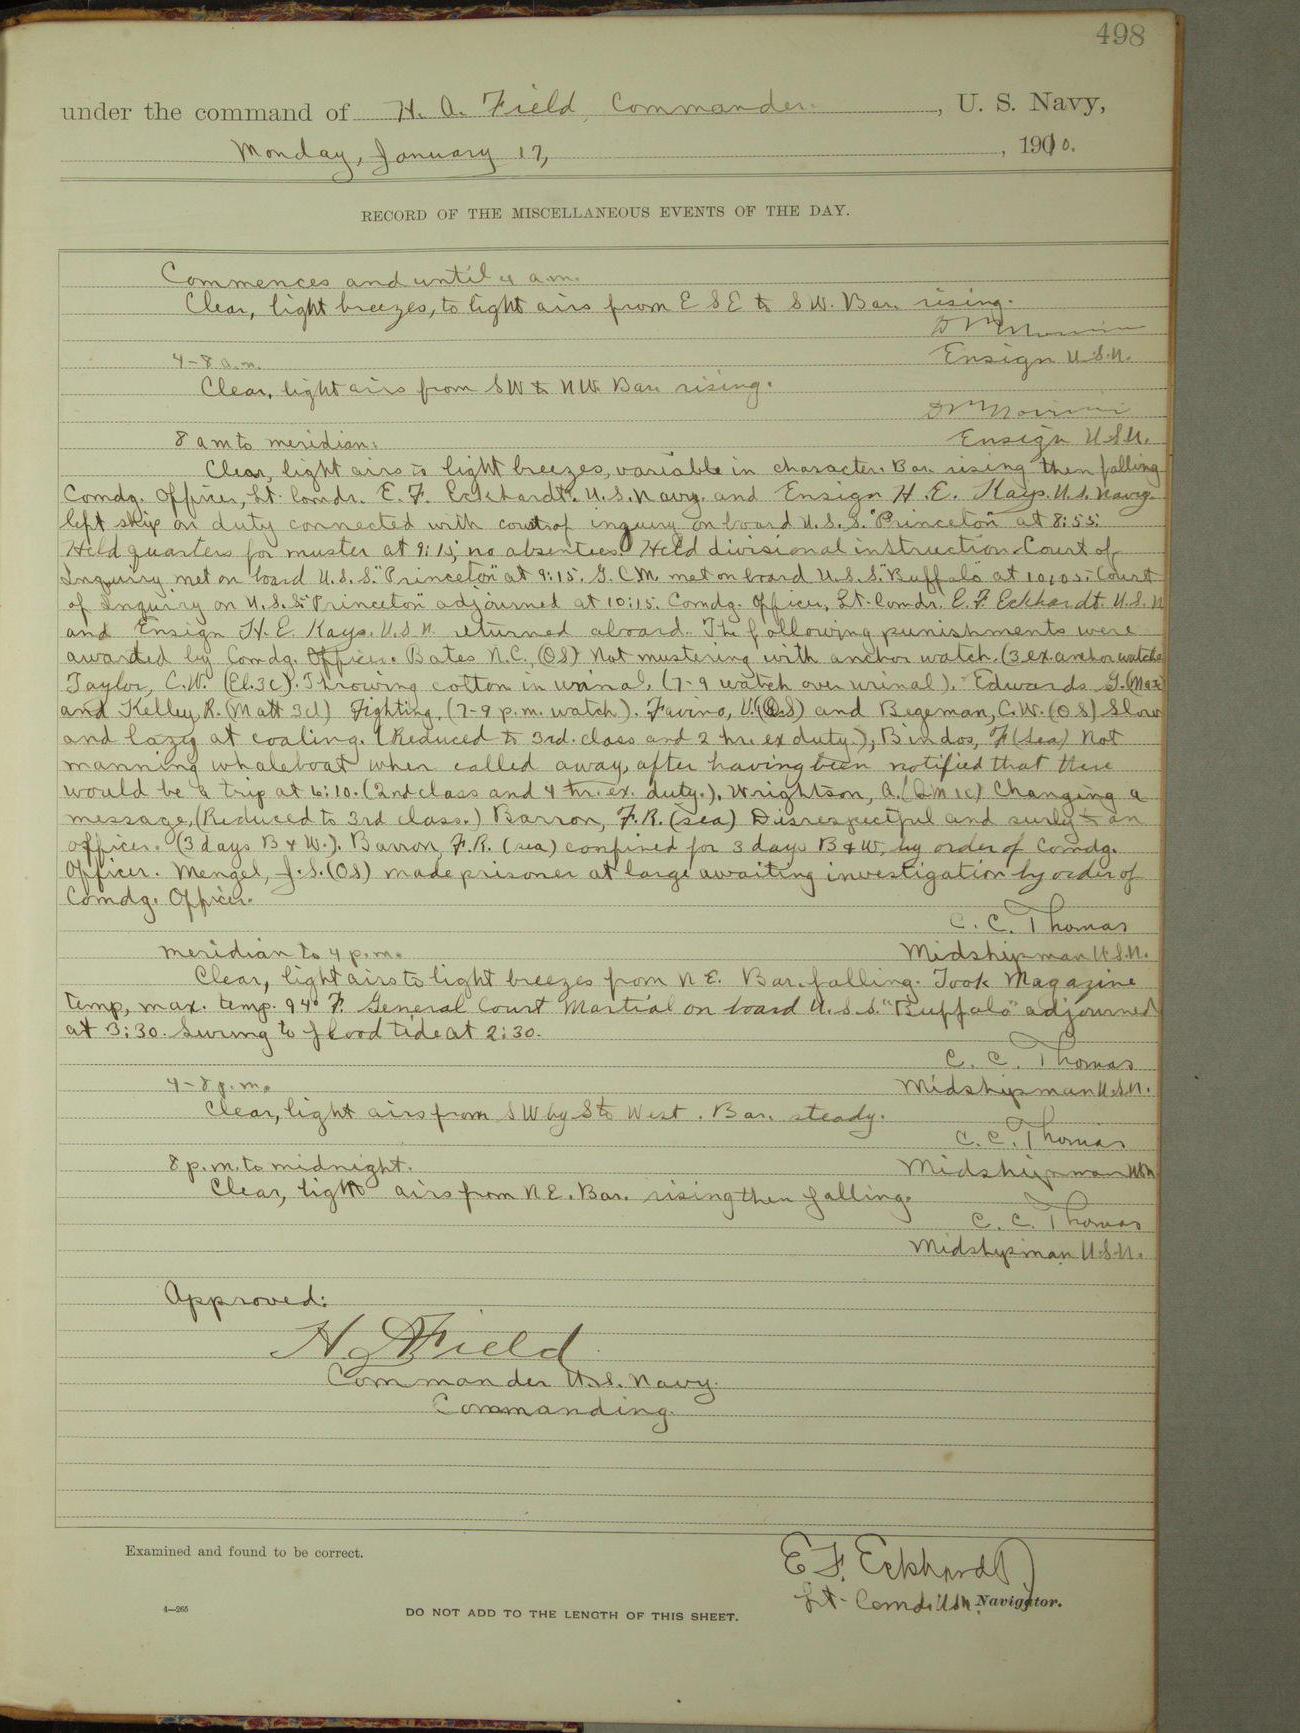 498
under the command of H. A. Field, Commander. , U. S. Navy,
Monday, January 17, , 1910.
RECORD OF THE MISCELLANEOUS EVENTS OF THE DAY.
Commences and until 4 a.m.
Clear, light breezes, to light airs from ESE to SW. Bar. rising.
Ensign U.S.N.
4-8 a.m.
Clear, light airs from SW to NW. Bar. rising.
Ensign U.S.N.
8 a m to meridian:
Clear, light airs to light breezes, variable in character. Bar. rising then falling
Comdg. Officer, Lt. Comdr. E. F. Eckhardt. U.S. Navy. and Ensign H. E. Kays. U.S. Navy.
left ship on duty connected with court of inquiry on board U.S.S. "Princeton" at 8:55.
Held quarters for muster at 9:15; no absentees. Held divisional instruction. Court of
Inquiry met on board U.S.S. "Princeton" at 9:15. G.C.M. met on board U.S.S. "Buffalo" at 10:05. Court
of Inquiry on U.S.S. "Princeton" adjourned at 10:15. Comdg. Officer, Lt. Comdr. E. F. Eckhardt. U.S.N
and Ensign H. E. Kays. U.S.N. returned aboard. The following punishments were
awarded by Comdg. Officer. Bates N.C. (OS) Not mustering with anchor watch. (3 ex. anchor watches
Taylor, C.W. (El.3C). Throwing cotton in urinal. (7-9 watch over urinal). Edwards G. (Matt
and Kelley, R. (Matt 3cl) Fighting. (7-9 p.m. watch). Favino, V. (O.S) and Begeman, C.W. (OS) Slow
and lazy at coaling. (Reduced to 3rd. class and 2 hr. ex duty.), Bindos, F (Sea) Not
manning whaleboat when called away, after having been notified that there
would be a trip at 6:10. (2nd class and 4 hr. ex. duty.), Wrightson, A. (QM 1C) Changing a
message, (Reduced to 3rd class.) Barron, F.R. (sea) Disrespectful and surly to an
officer. (3 days B & W.). Barron, F.R. (sea) confined for 3 days B & W, by order of Comdg.
Officer. Mengel, J.S. (OS) made prisoner at large awaiting investigation by order of
Comdg. Officer.
C. C. Thomas
Midshipman U.S.N.
meridian to 4 p.m.
Clear, light airs to light breezes from N E. Bar. falling. Took Magazine
temp, max. temp. 94° F. General Court Martial on board U.S.S. "Buffalo" adjourned
at 3:30. Swung to flood tide at 2:30.
C. C. Thomas
Midshipman U.S.N.
4-8 p.m.
Clear, light airs from SW by S to West. Bar. steady.
C. C. Thomas
Midshipman USN
8 p.m. to midnight.
Clear, light airs from N E. Bar. rising then falling.
C. C. Thomas
Midshipman U.S.N.
Approved:
H A Field
Commander U.S. Navy.
Commanding.
Examined and found to be correct.
E F. Eckhardt
Lt-Comdr. USN. Navigator.
4—265
DO NOT ADD TO THE LENGTH OF THIS SHEET.